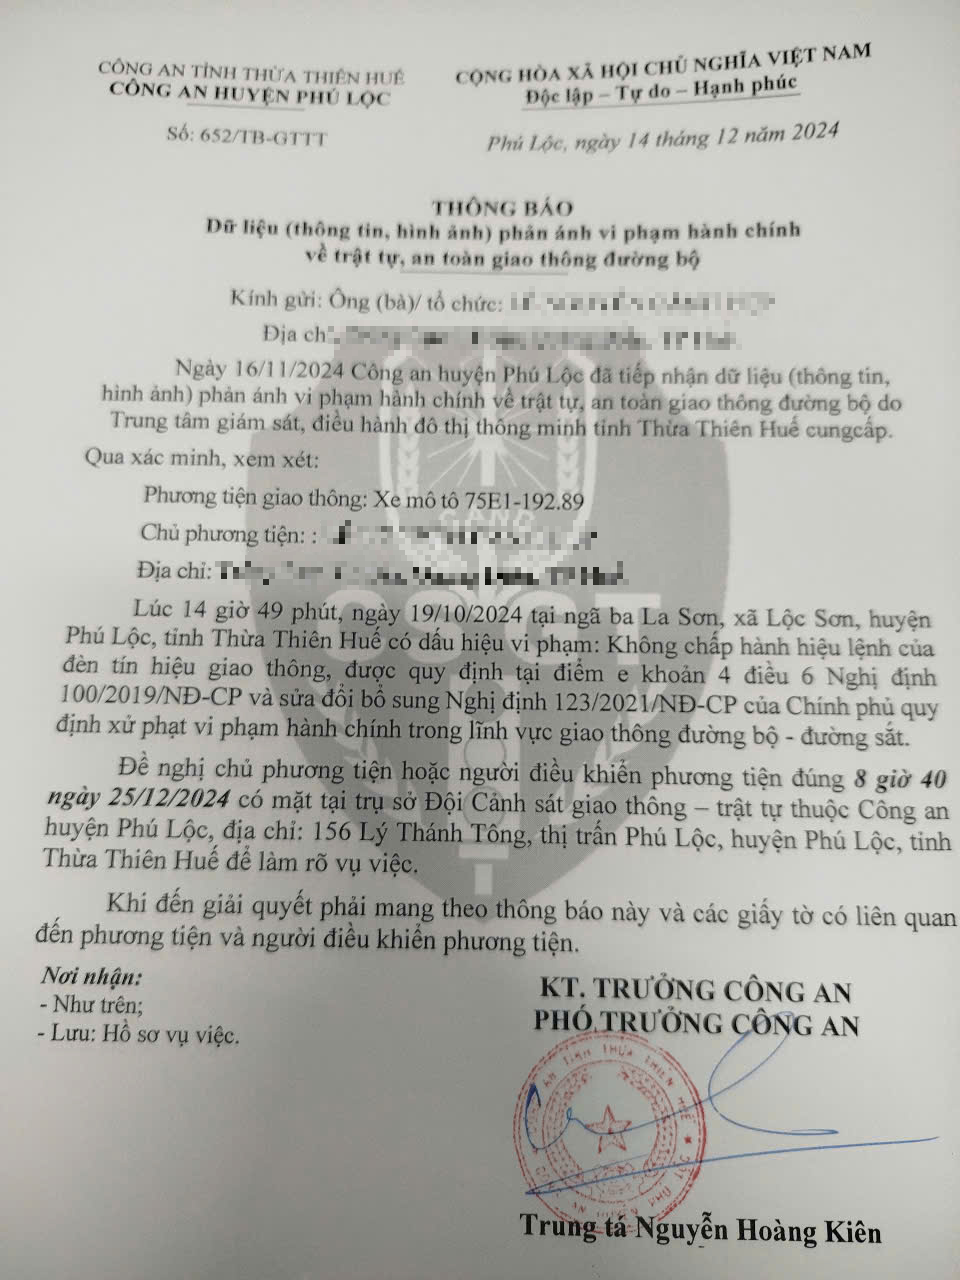 CÔNG AN TỈNH THỪA THIÊN HUẾ
CÔNG AN HUYỆN PHÚ LỘC
Số: 652/TB-GTTT
CỘNG HÒA XÃ HỘI CHỦ NGHĨA VIỆT NAM
Độc lập – Tự do – Hạnh phúc
Phú Lộc, ngày 14 tháng 12 năm 2024
THÔNG BÁO
Dữ liệu (thông tin, hình ảnh) phản ánh vi phạm hành chính
về trật tự, an toàn giao thông đường bộ
Kính gửi: Ông (bà)/ tổ chức:
Địa ch
Ngày 16/11/2024 Công an huyện Phú Lộc đã tiếp nhận dữ liệu (thông tin,
hình ảnh) phản ánh vi phạm hành chính về trật tự, an toàn giao thông đường bộ do
Trung tâm giám sát, điều hành đô thị thông minh tỉnh Thừa Thiên Huế cungcấp.
Qua xác minh, xem xét:
Phương tiện giao thông: Xe mô tô 75E1-192.89
Chủ phương tiện: :
Địa chỉ:
Lúc 14 giờ 49 phút, ngày 19/10/2024 tại ngã ba La Sơn, xã Lộc Sơn, huyện
Phú Lộc, tỉnh Thừa Thiên Huế có dấu hiệu vi phạm: Không chấp hành hiệu lệnh của
đèn tín hiệu giao thông, được quy định tại điểm e khoản 4 điều 6 Nghị định
100/2019/NĐ-CP và sửa đổi bổ sung Nghị định 123/2021/NĐ-CP của Chính phủ quy
định xử phạt vi phạm hành chính trong lĩnh vực giao thông đường bộ - đường sắt.
Đề nghị chủ phương tiện hoặc người điều khiển phương tiện đúng 8 giờ 40
ngày 25/12/2024 có mặt tại trụ sở Đội Cảnh sát giao thông – trật tự thuộc Công an
huyện Phú Lộc, địa chỉ: 156 Lý Thánh Tông, thị trấn Phú Lộc, huyện Phú Lộc, tỉnh
Thừa Thiên Huế để làm rõ vụ việc.
Khi đến giải quyết phải mang theo thông báo này và các giấy tờ có liên quan
đến phương tiện và người điều khiển phương tiện.
Nơi nhận:
- Như trên;
- Lưu: Hồ sơ vụ việc.
KT. TRƯỞNG CÔNG AN
PHÓ TRƯỞNG CÔNG AN
Trung tá Nguyễn Hoàng Kiên